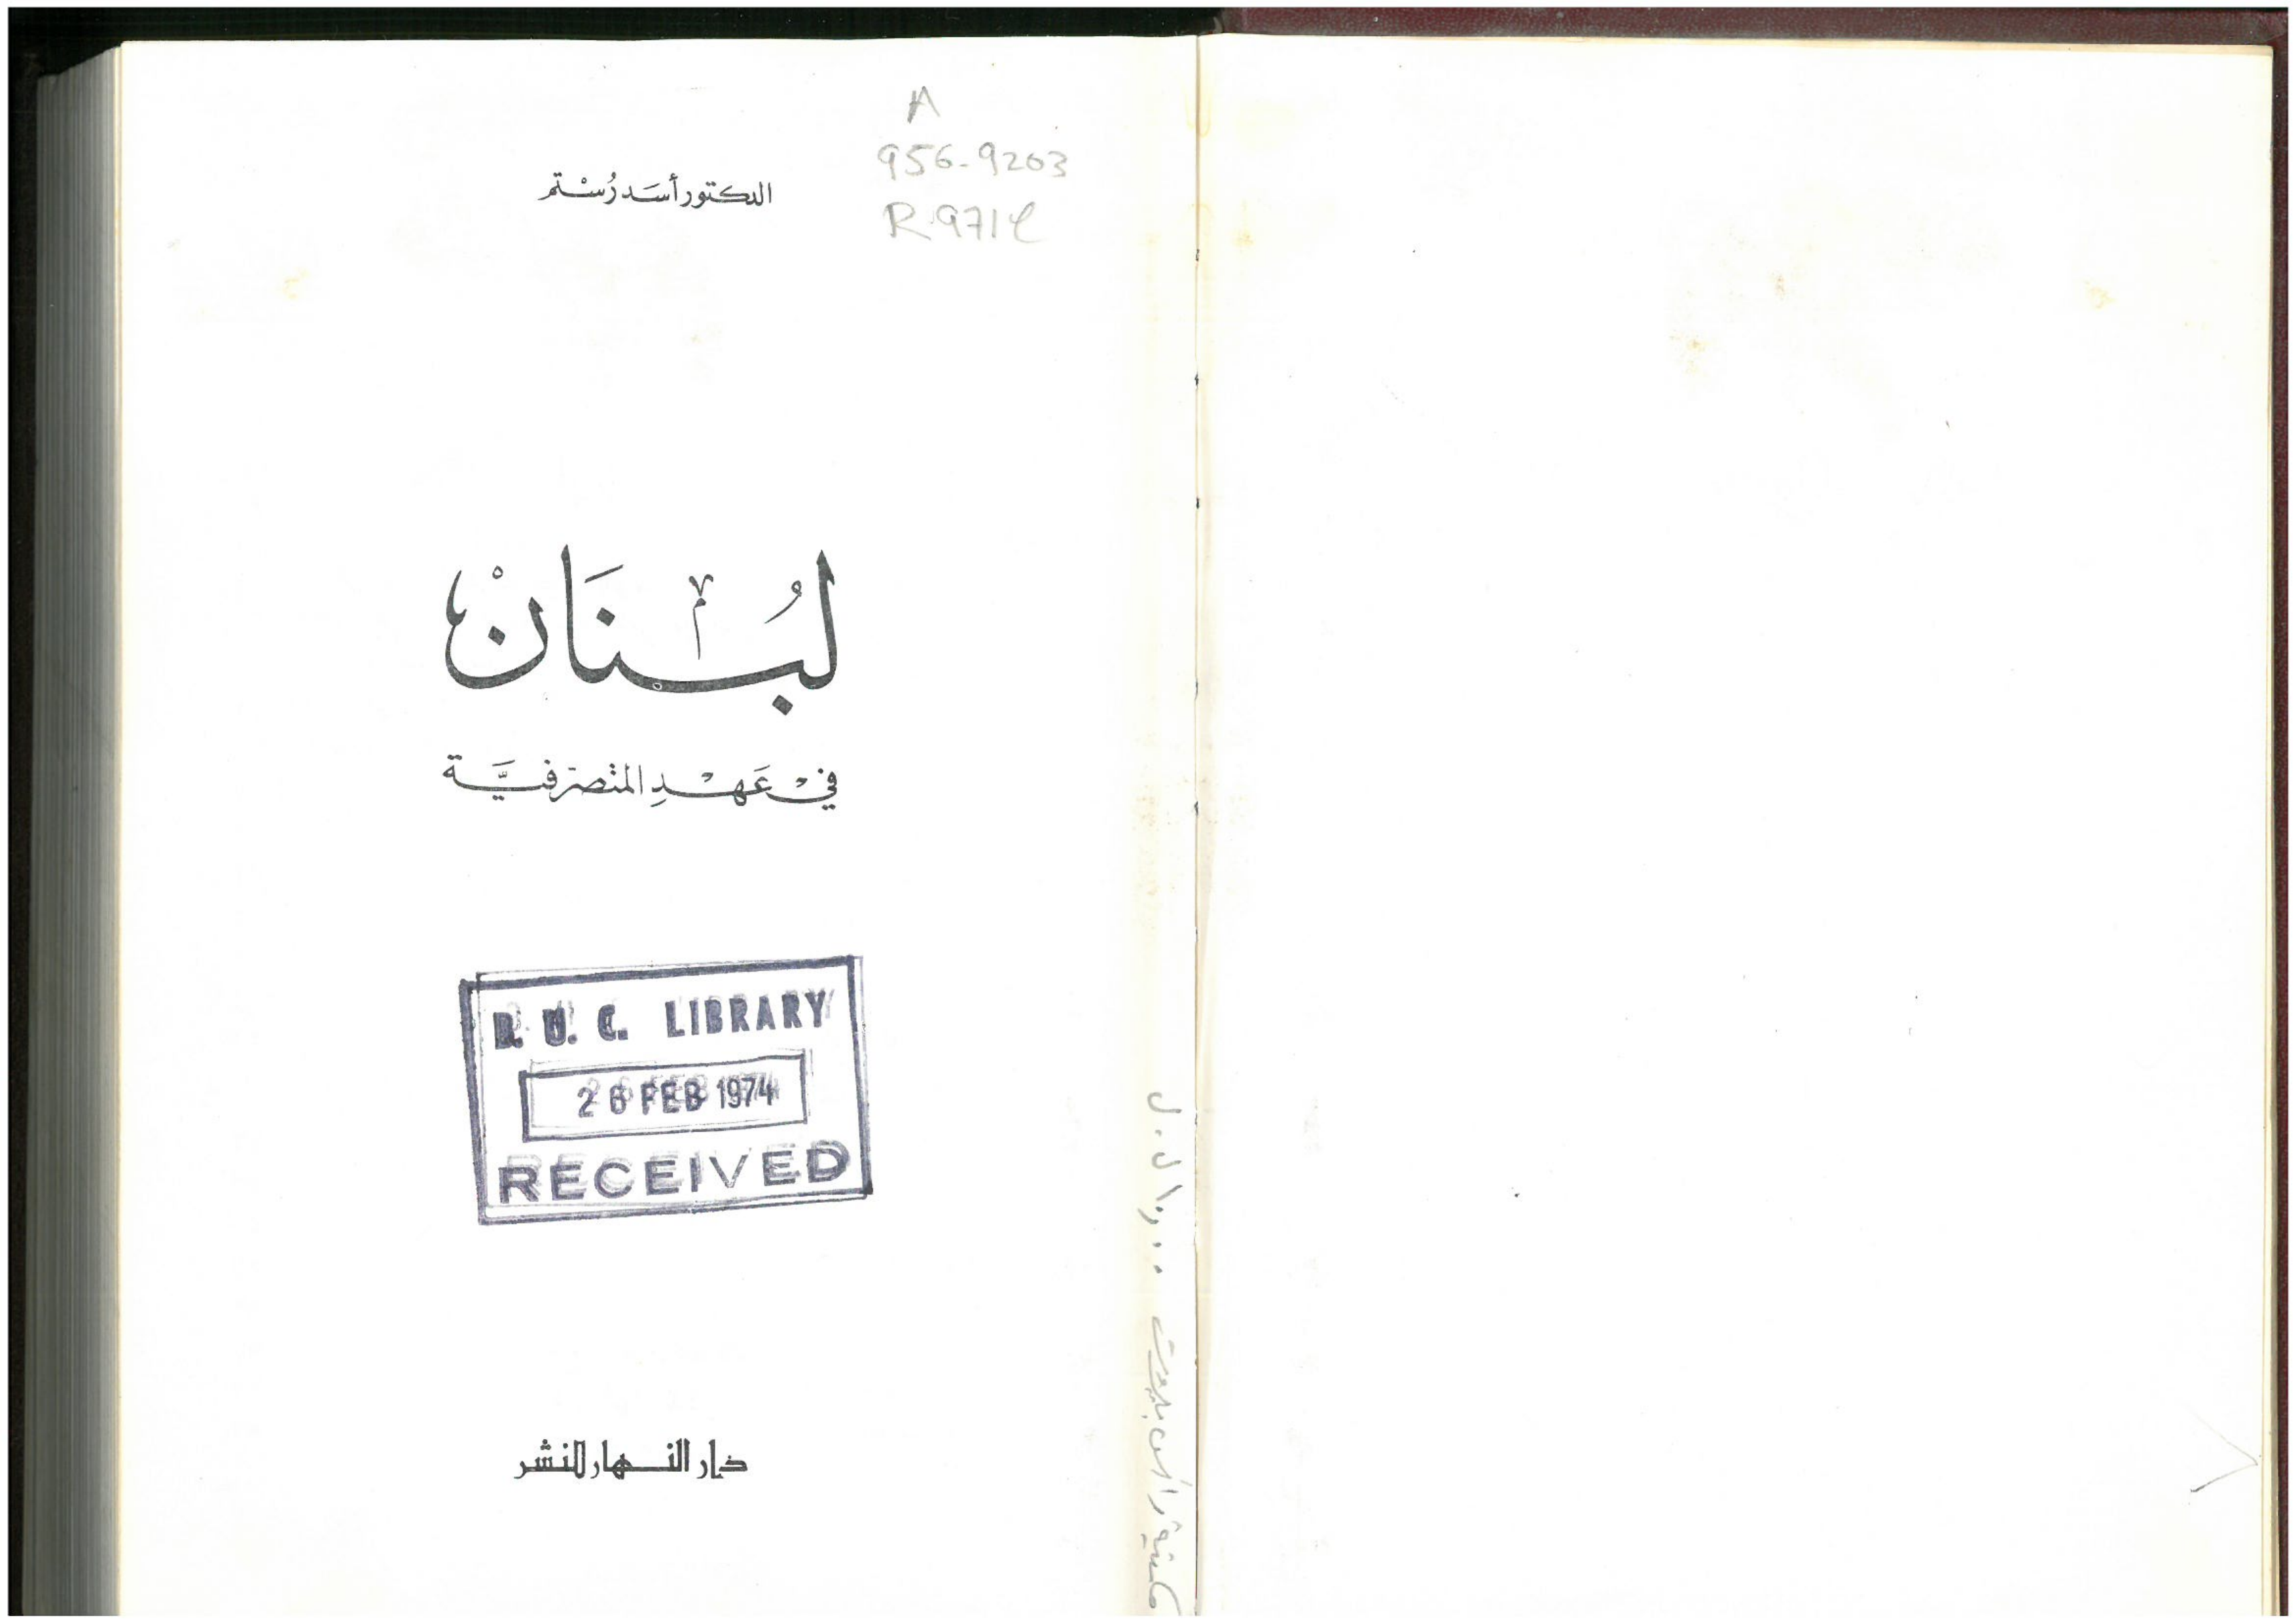 A
956-9203
R971ل
الدكتور أسَد رُسْتم
لُبْنَانْ
في عَهْدِ المتصرّفيَّة
B. U. C. LIBRARY
26 FEB 1974
RECEIVED
دار النهار للنشر
مكتبة رأس بيروت
ل.ل